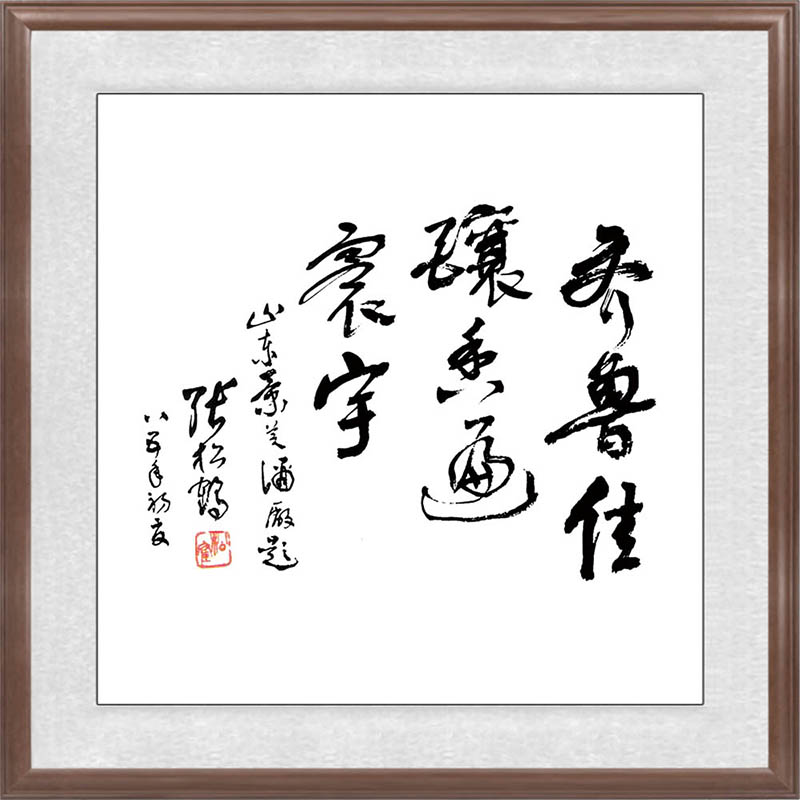 齐鲁佳
釀香遍
寰宇
山东景芝酒厰题
张松鹤
八五年初夏